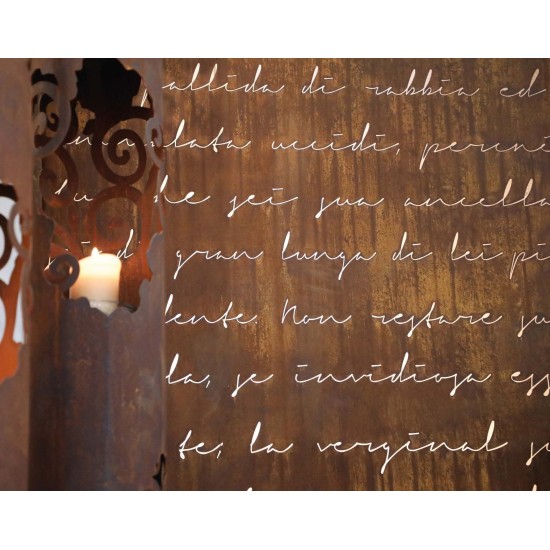 pallida di rabbia ed
lata uccidi, perché
he sei sua ancella
gran lunga di lei pi
lente. Non restare su
la, se invidiosa ess
te; la verginal s